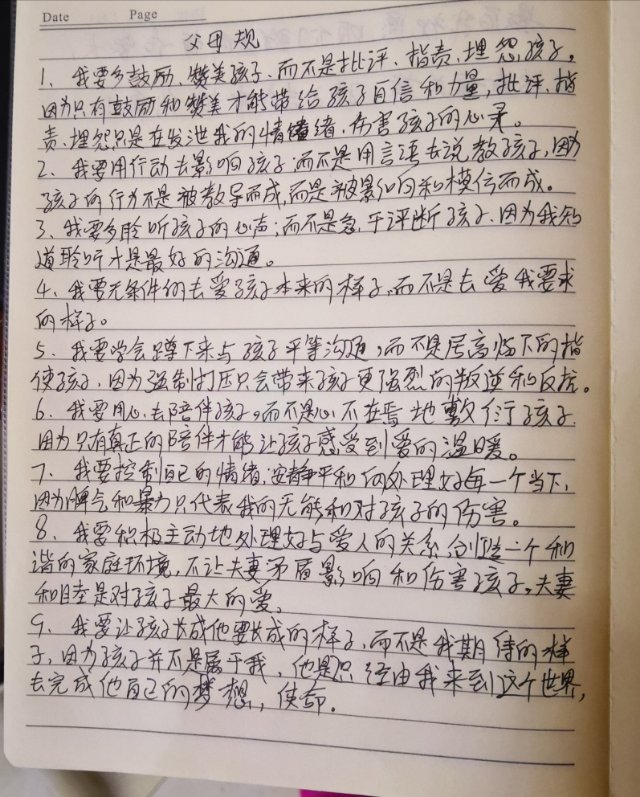 Date Page
父母规
1、我要多鼓励、赞美孩子、而不是批评、指责、埋怨孩子。
因为只有鼓励和赞美才能带给孩子自信和力量,批评、指
责、埋怨只是在发泄我的情绪、伤害孩子的心灵。
2、我要用行动去影响孩子,而不是用言语去说教孩子,因为
孩子的行为不是被教导而成,而是被影响和模仿而成。
3、我要多聆听孩子的心声;而不是急于评断孩子、因为我知
道聆听才是最好的沟通。
4、我要无条件的去爱孩子本来的样子,而不是去爱我要求
的样子。
5、我要学会蹲下来与孩子平等沟通,而不是居高临下的指
使孩子、因为强制打压只会带来孩子更强烈的叛逆和反抗。
6、我要用心去陪伴孩子,而不是心不在焉地敷衍孩子,
因为只有真正的陪伴才能让孩子感受到爱的温暖。
7、我要控制自己的情绪,安静平和的处理好每一个当下,
因为脾气和暴力只代表我的无能和对孩子的伤害。
8、我要积极主动地处理好与爱人的关系,创造一个和
谐的家庭环境,不让夫妻矛盾影响和伤害孩子。夫妻
和睦是对孩子最大的爱。
9、我要让孩子长成他要长成的样子,而不是我期待的样
子,因为孩子并不是属于我,他是只经由我来到这个世界,
去完成他自己的梦想,使命。